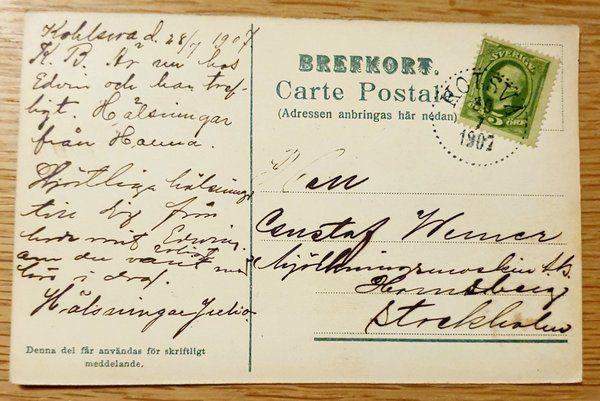 Kohlsva d. 28/7 1907
K. B. Är nu hos
Edvin och har tref-
ligt. Hälsningar
från Hanna.
Hjärtliga hälsningar
till dig från
Edvin
om du varit med
oss i dag.
Hälsningar Julia
Denna del får användas för skriftligt
meddelande.
BREFKORT.
Carte Postale
(Adressen anbringas här nedan)
SVERIGE
5 ÖRE
KOTSVA
28
7
1907
Herr
Gustaf Werner
Mjölkningsmaskin A.B.
Hornsberg
Stockholm